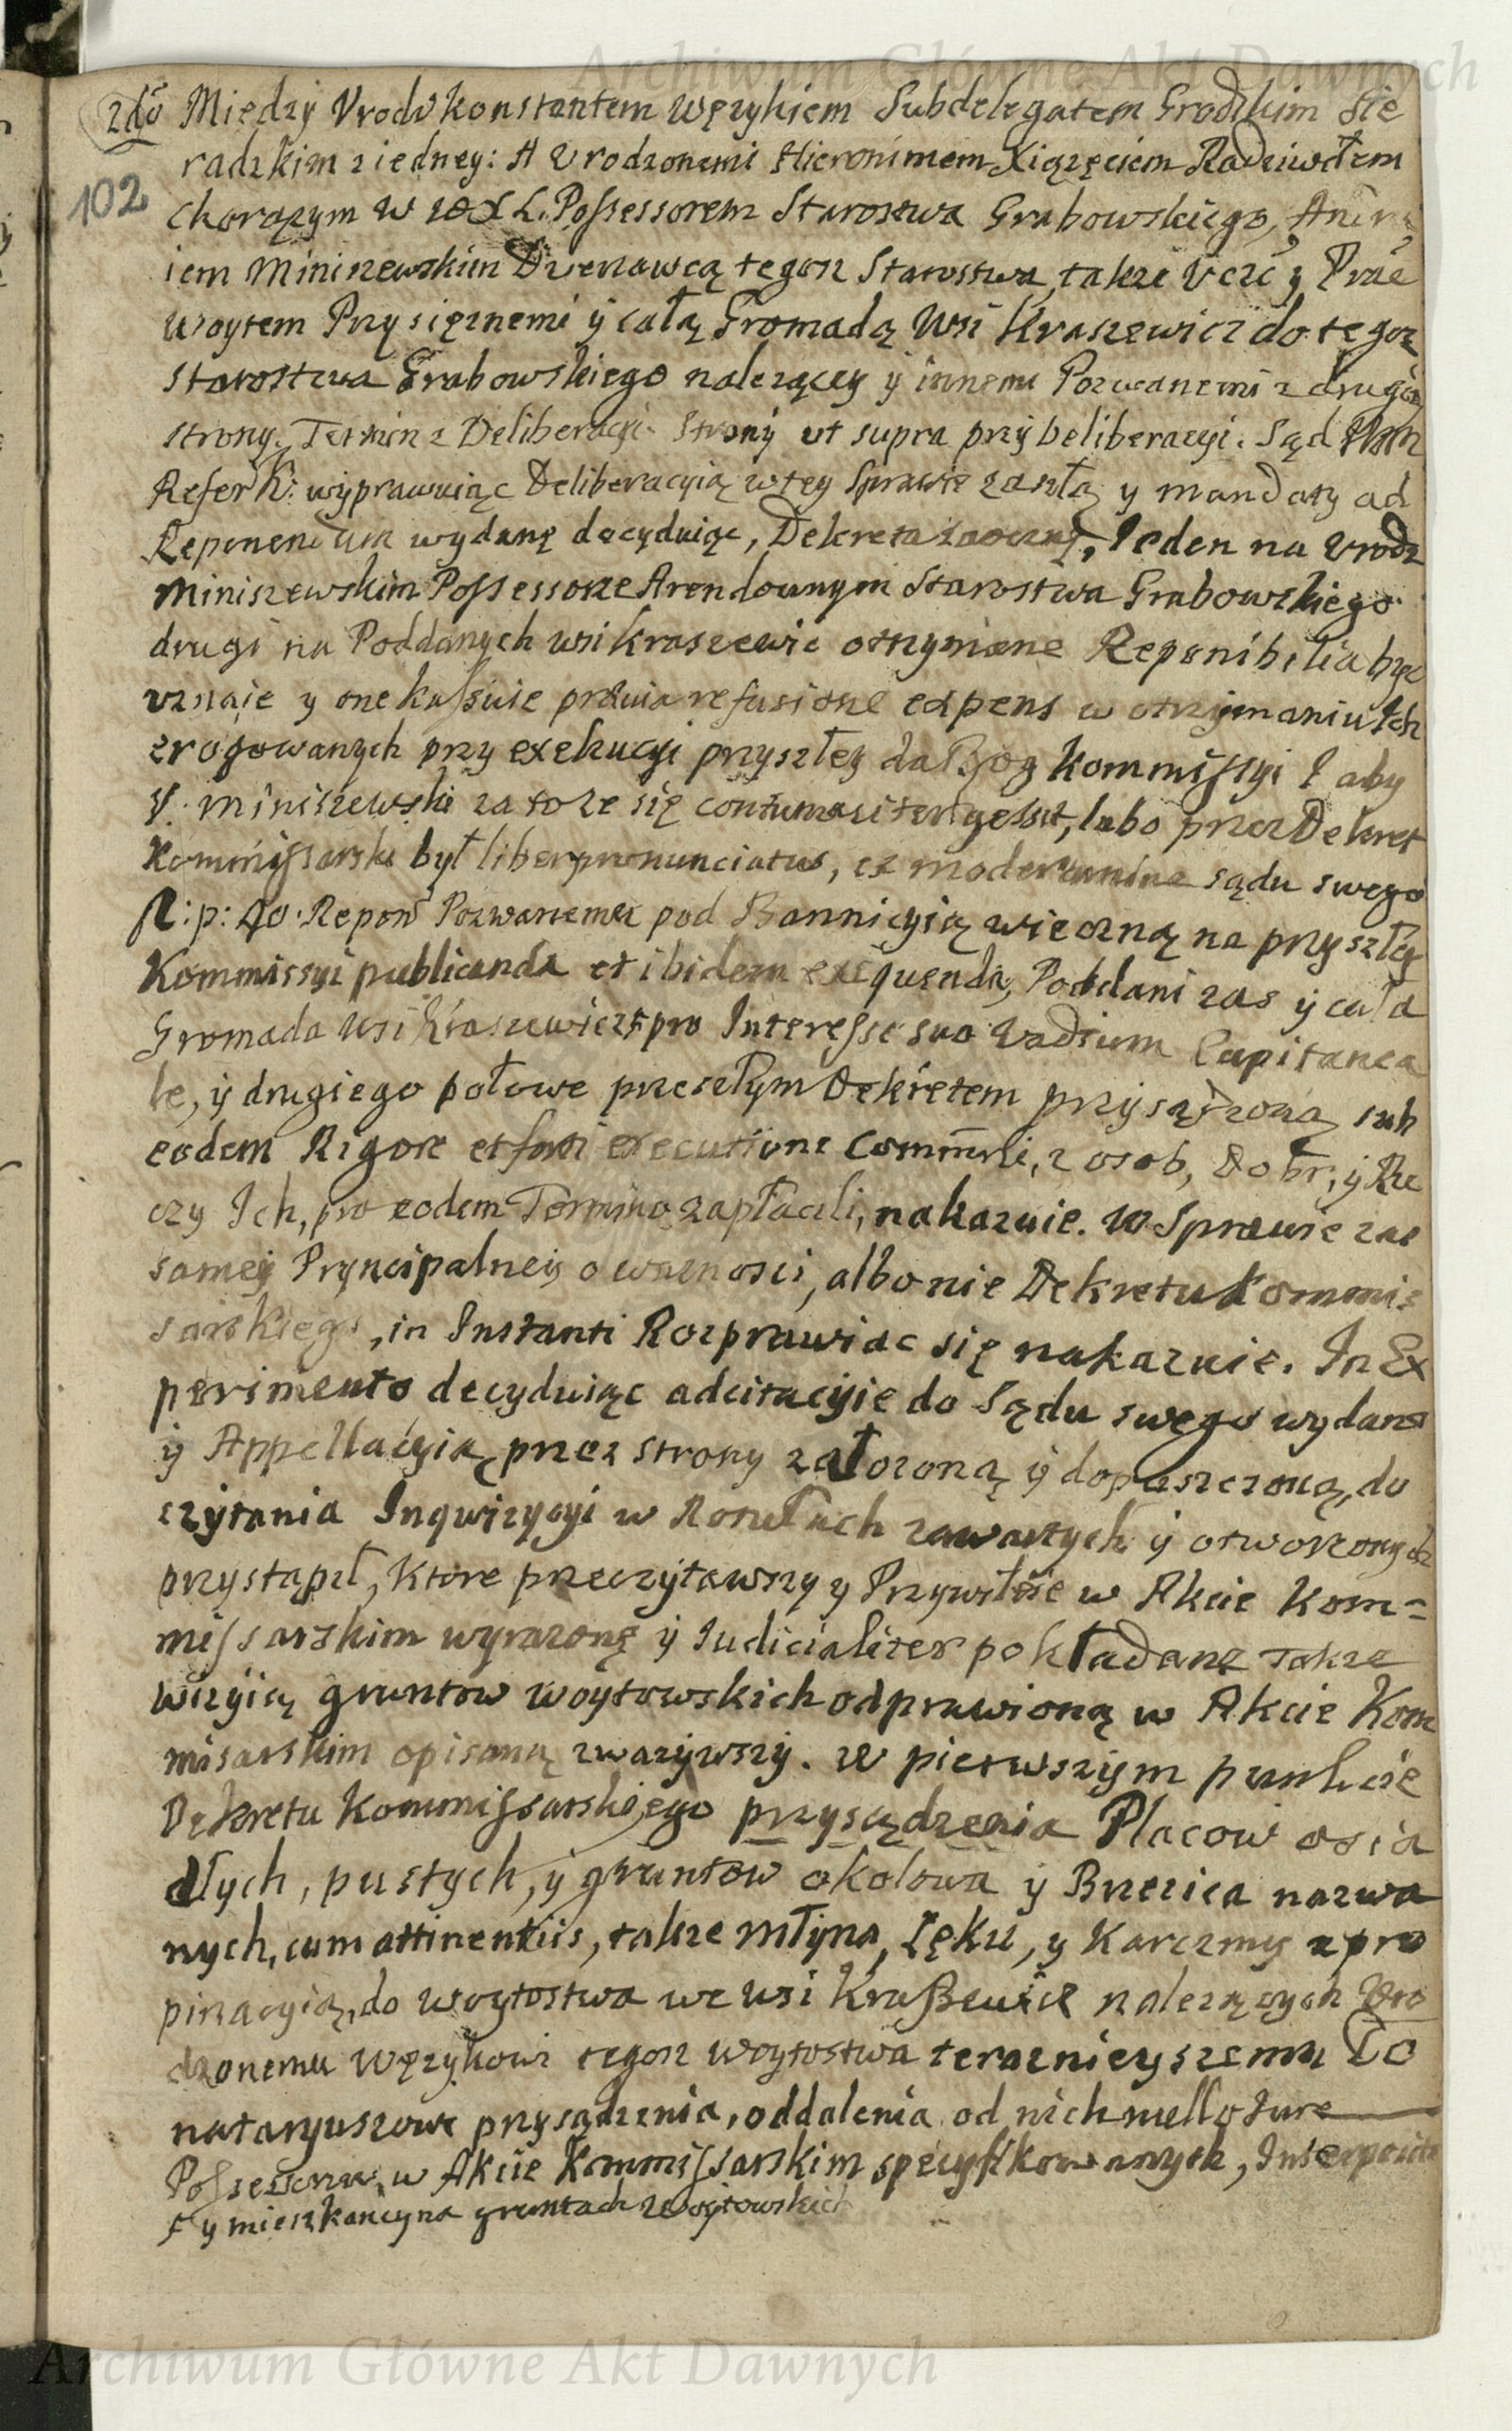 Archiwum Główne Akt Dawnych
2do Między Vrodz Konstantem Węzykiem Subdelegatem Grodzkim Sie
102
radzkim z iedney: A Vrodzonemi Hieronimem Xiązęciem Radziwiłem
chorązym W X L. Possessorem Starostwa Grabowskiego, Andrze
iem Miniszewskim Dzierzawcą tegosz Starostwa, takze Vczć y Prac
Woytem Przysięznemi y całą Gromadą Wsi Kraszewicz do tegoz
Starostwa Grabowskiego nalezącey y innemi Pozwanemi z drugiey
strony. Termin z Deliberacyi. Strony vt supra przy Deliberacyi. Sąd
Refer K: wyprawuiąc Deliberacyią w tey Sprawie zaszłą y mandaty ad
Reponendum wydanę decyduiąc, Dekreta zaoczne, Ieden na Vrodz
Miniszewskim Possessorze Arendownym Starostwa Grabowskiego
drugi na Poddanych wsi Kraszewic otrzymane Reponibilia bydz
vznaie y one kassuie praevia refusione expens w otrzymaniu Ich
erogowanych przy exekucyi przyszłey da Bog Kommissyi I aby
V. Miniszewski za to ze się contumaciter gessit, lubo przez Dekret
Kommissarski był liber pronunciatus, ex moderamine sądu swego
po: Repon Pozwanemu pod Bannicyią wieczną na przyszłey
Kommissyi publicanda et ibidem exequenda, Poddani zas y cała
Gromada wsi Kraszewicz ӻ pro Interesse suo Vadium Capitanea
le, y drugiego połowe przeszłym Dekretem przysądzoną sub
eodem Rigore et executione Commrli, z osob, Dobr, y Rze
czy Ich, pro eodem Termino zapłacili, nakazuie. W Sprawie zas
samey Pryncipalney o wazności, albo nie Dekretu Kommis
sarskiego, in Instanti Rozprawiac się nakazuie. In Ex
perimento decyduiąc adcitacyie do Sądu swego wydane
y Appellacyią przez strony załozoną y dopuszczoną, do
czytania Inqwizycyi w Rotułach zawartych y otworzonych
przystąpił, Ktore przeczytawszy y Przywileie w Akcie Kom=
missarskim wyrazonę y Iudicialiter pokładane Takze
wizyią gruntow Woytowskich odprawioną w Akcie Kom
misarskim opisaną zwazywszy. W pierwszym punkcie
Dekretu Kommissarskiego przysądzenia Placow osia
dłych, pustych, y gruntow okolowa y Brzezica nazwa
nych, cum attinentiis, takze Młyna, Łęku, y Karczmy z pro
pinacyią, do Woytostwa we wsi Kraszewice nalezących Vro
dzonemu Węzykowi tegosz Woytostwa teraznieyszemu Do
nataryuszowi przysądzenia, oddalenia od nich nullo Iure
Possessorow, w Akcie Kommissarskim specyfikowanych,
ӻ y mieszkancy na gruntach Woytowskich
Archiwum Główne Akt Dawnych